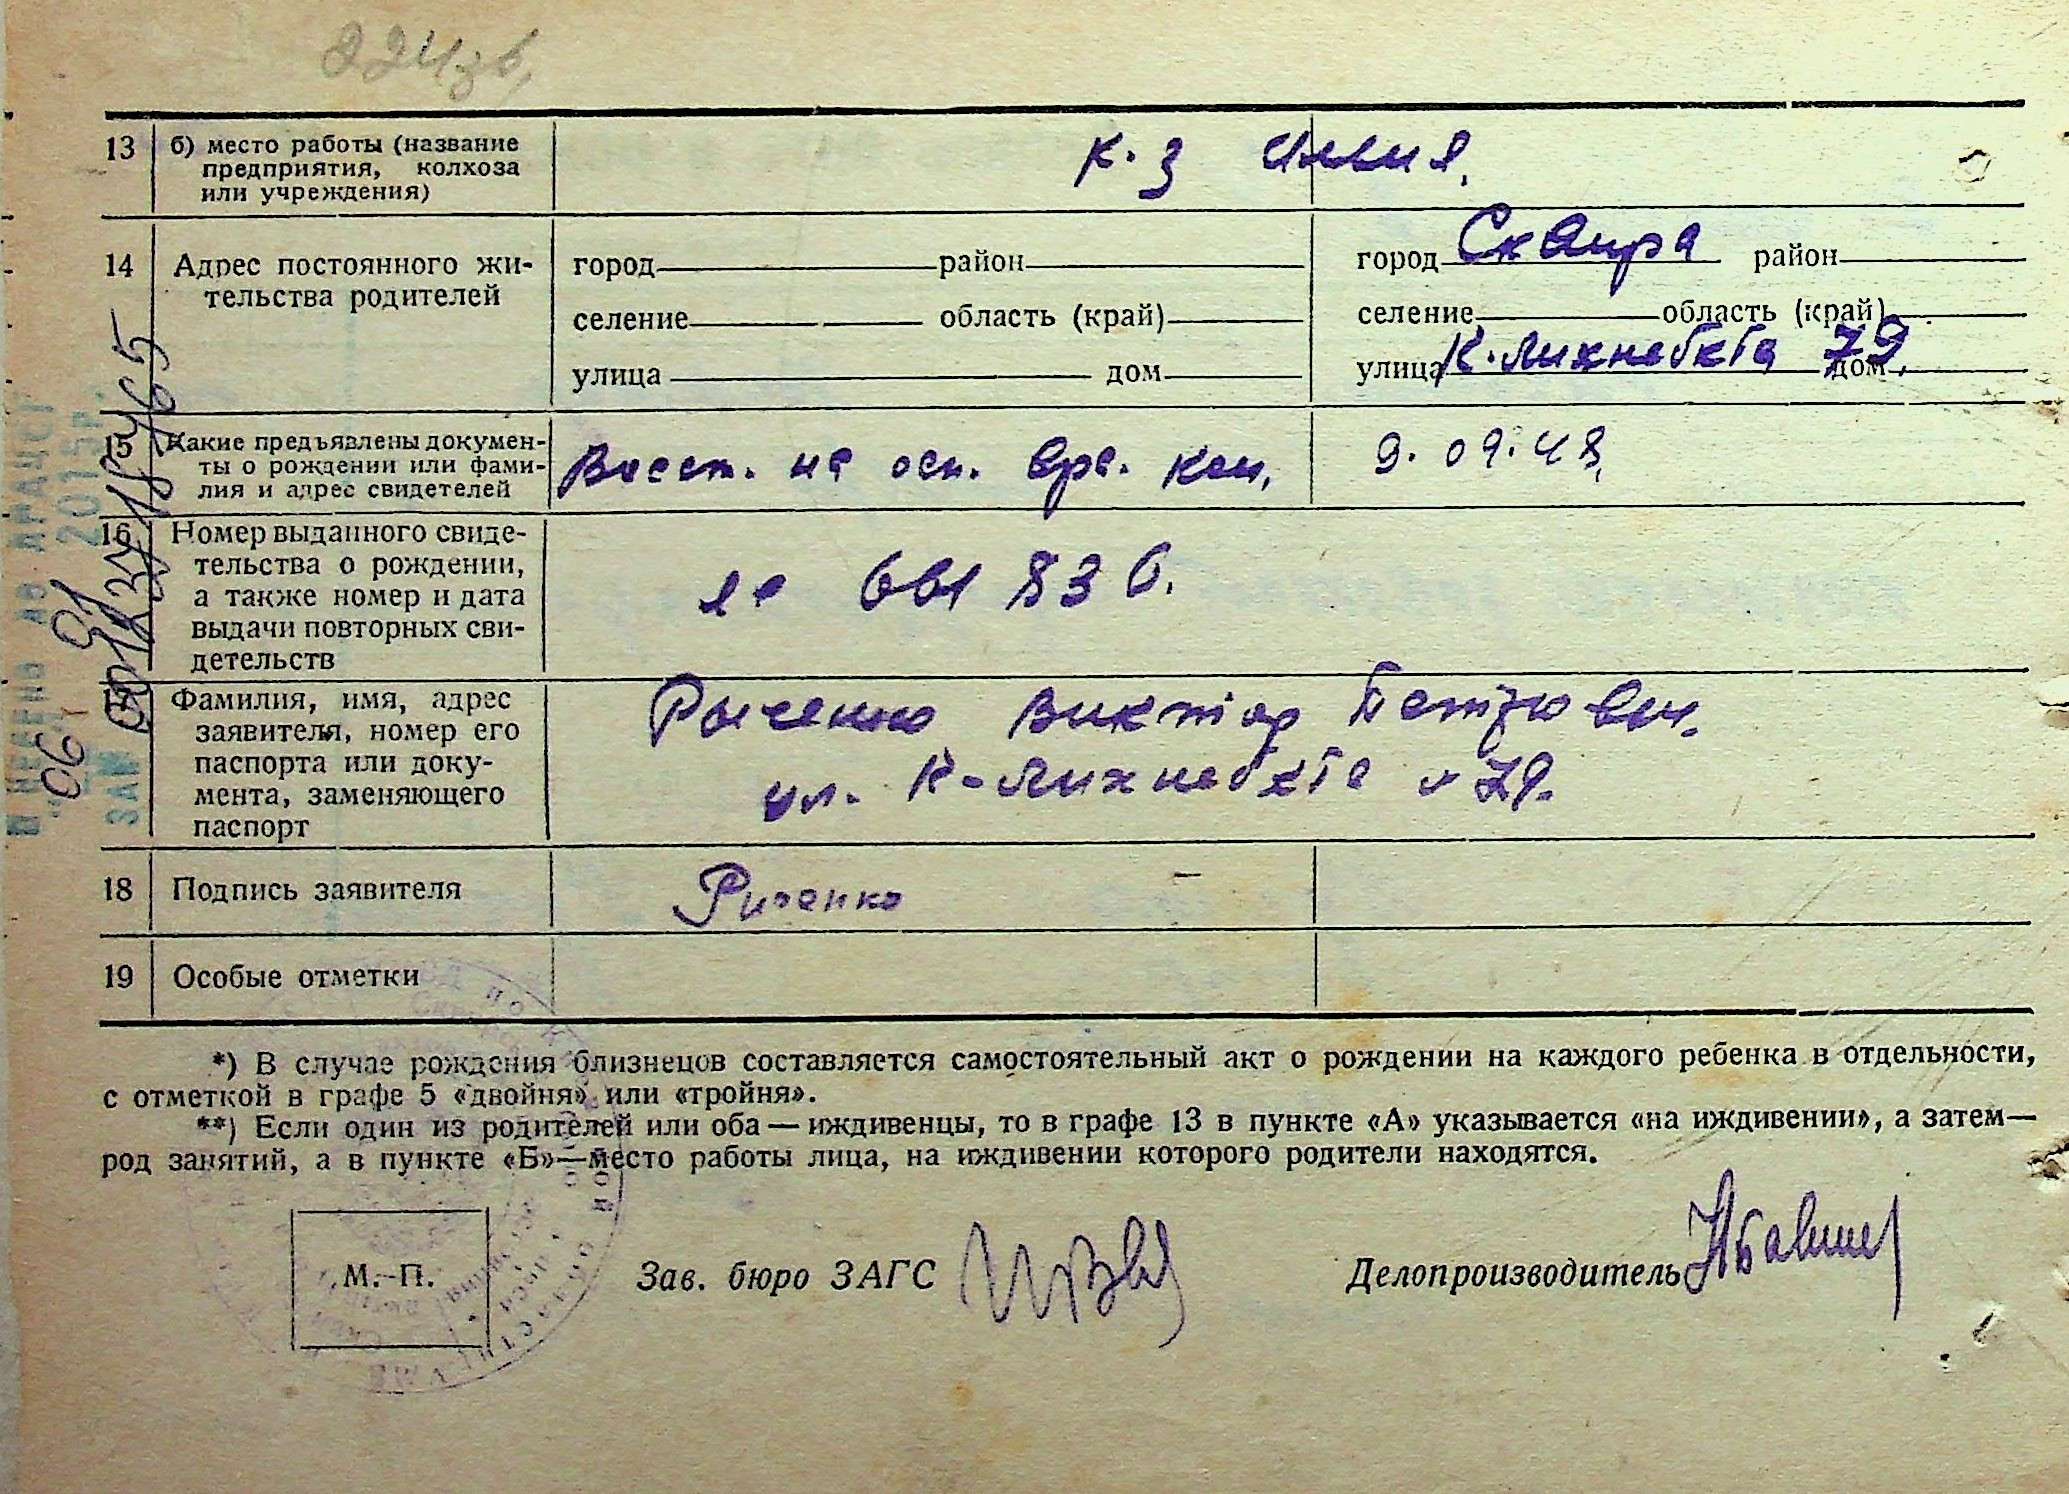 13 б) место работы (название
предприятия, колхоза
или учреждения)
к-з
14 Адрес постоянного жи-
тельства родителей
город район
селение область (край)
улица дом
город Сквира район
селение область (край)
улица К. Либкнехта 79 дом
15 Какие предъявлены докумен-
ты о рождении или фами-
лия и адрес свидетелей
Восст. на осн. вра. ком. 9.09.48
16 Номер выданного свиде-
тельства о рождении,
а также номер и дата
выдачи повторных сви-
детельств
661836.
17 Фамилия, имя, адрес
заявителя, номер его
паспорта или доку-
мента, заменяющего
паспорт
Рыченко Виктор Петрович.
ул. К-Либкнехта 79.
18 Подпись заявителя
Риченко
19 Особые отметки
*) В случае рождения близнецов составляется самостоятельный акт о рождении на каждого ребенка в отдельности,
с отметкой в графе 5 «двойня» или «тройня».
**) Если один из родителей или оба — иждивенцы, то в графе 13 в пункте «А» указывается «на иждивении», а затем—
род занятий, а в пункте «Б»—место работы лица, на иждивении которого родители находятся.
М. П.
Зав. бюро ЗАГС
Делопроизводитель